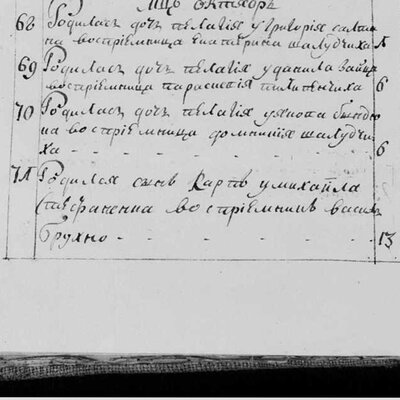 Мцъ октябрь
68 Родилась дочь пелагия угригория
на воспріемница екатерина шалудчиха 5
69 Родилась дочь пелагія уданила зайца
воспріемница параскевия пилипенчиха 6
70 Родилась дочь пелагія уякова
на воспріемница домникия шалудчи
ха - - - - - 6
71 Родился сынъ Карпъ умихайла
воспріемникъ василь
Трухно - - - - - 13